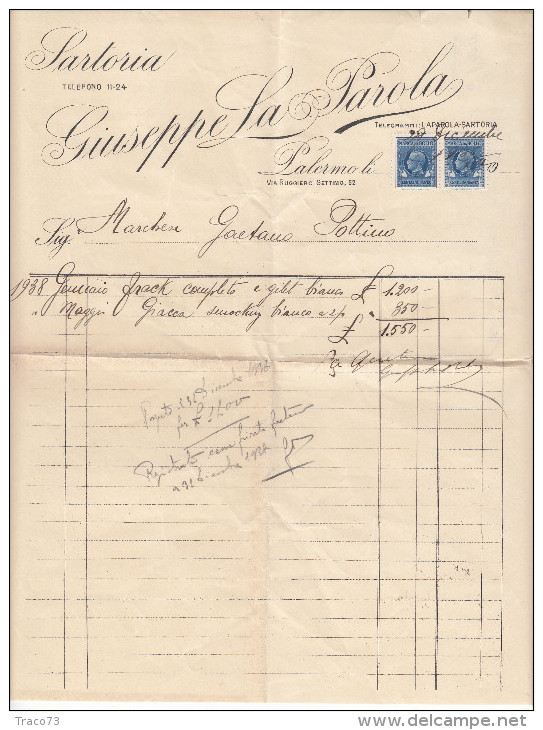 Sartoria
TELEFONO 11-24
Giuseppe La Parola
TELEGRAMMI: LAPAROLA-SARTORIA
Palermo li
Dicembre
VIA RUGGIERO SETTIMO, 52
Sig. Marchese Gaetano Pottino
1938 Gennaio frack completo e gilet bianco £ 1.200-
" Maggio Giacca smocking bianco a 2p " 350-
£ 1.550-
Pagato il 31 Dicembre 1938
per £ 1400
Registrato come
a 31 Dicembre 1938
Traco73
www.delcampe.net